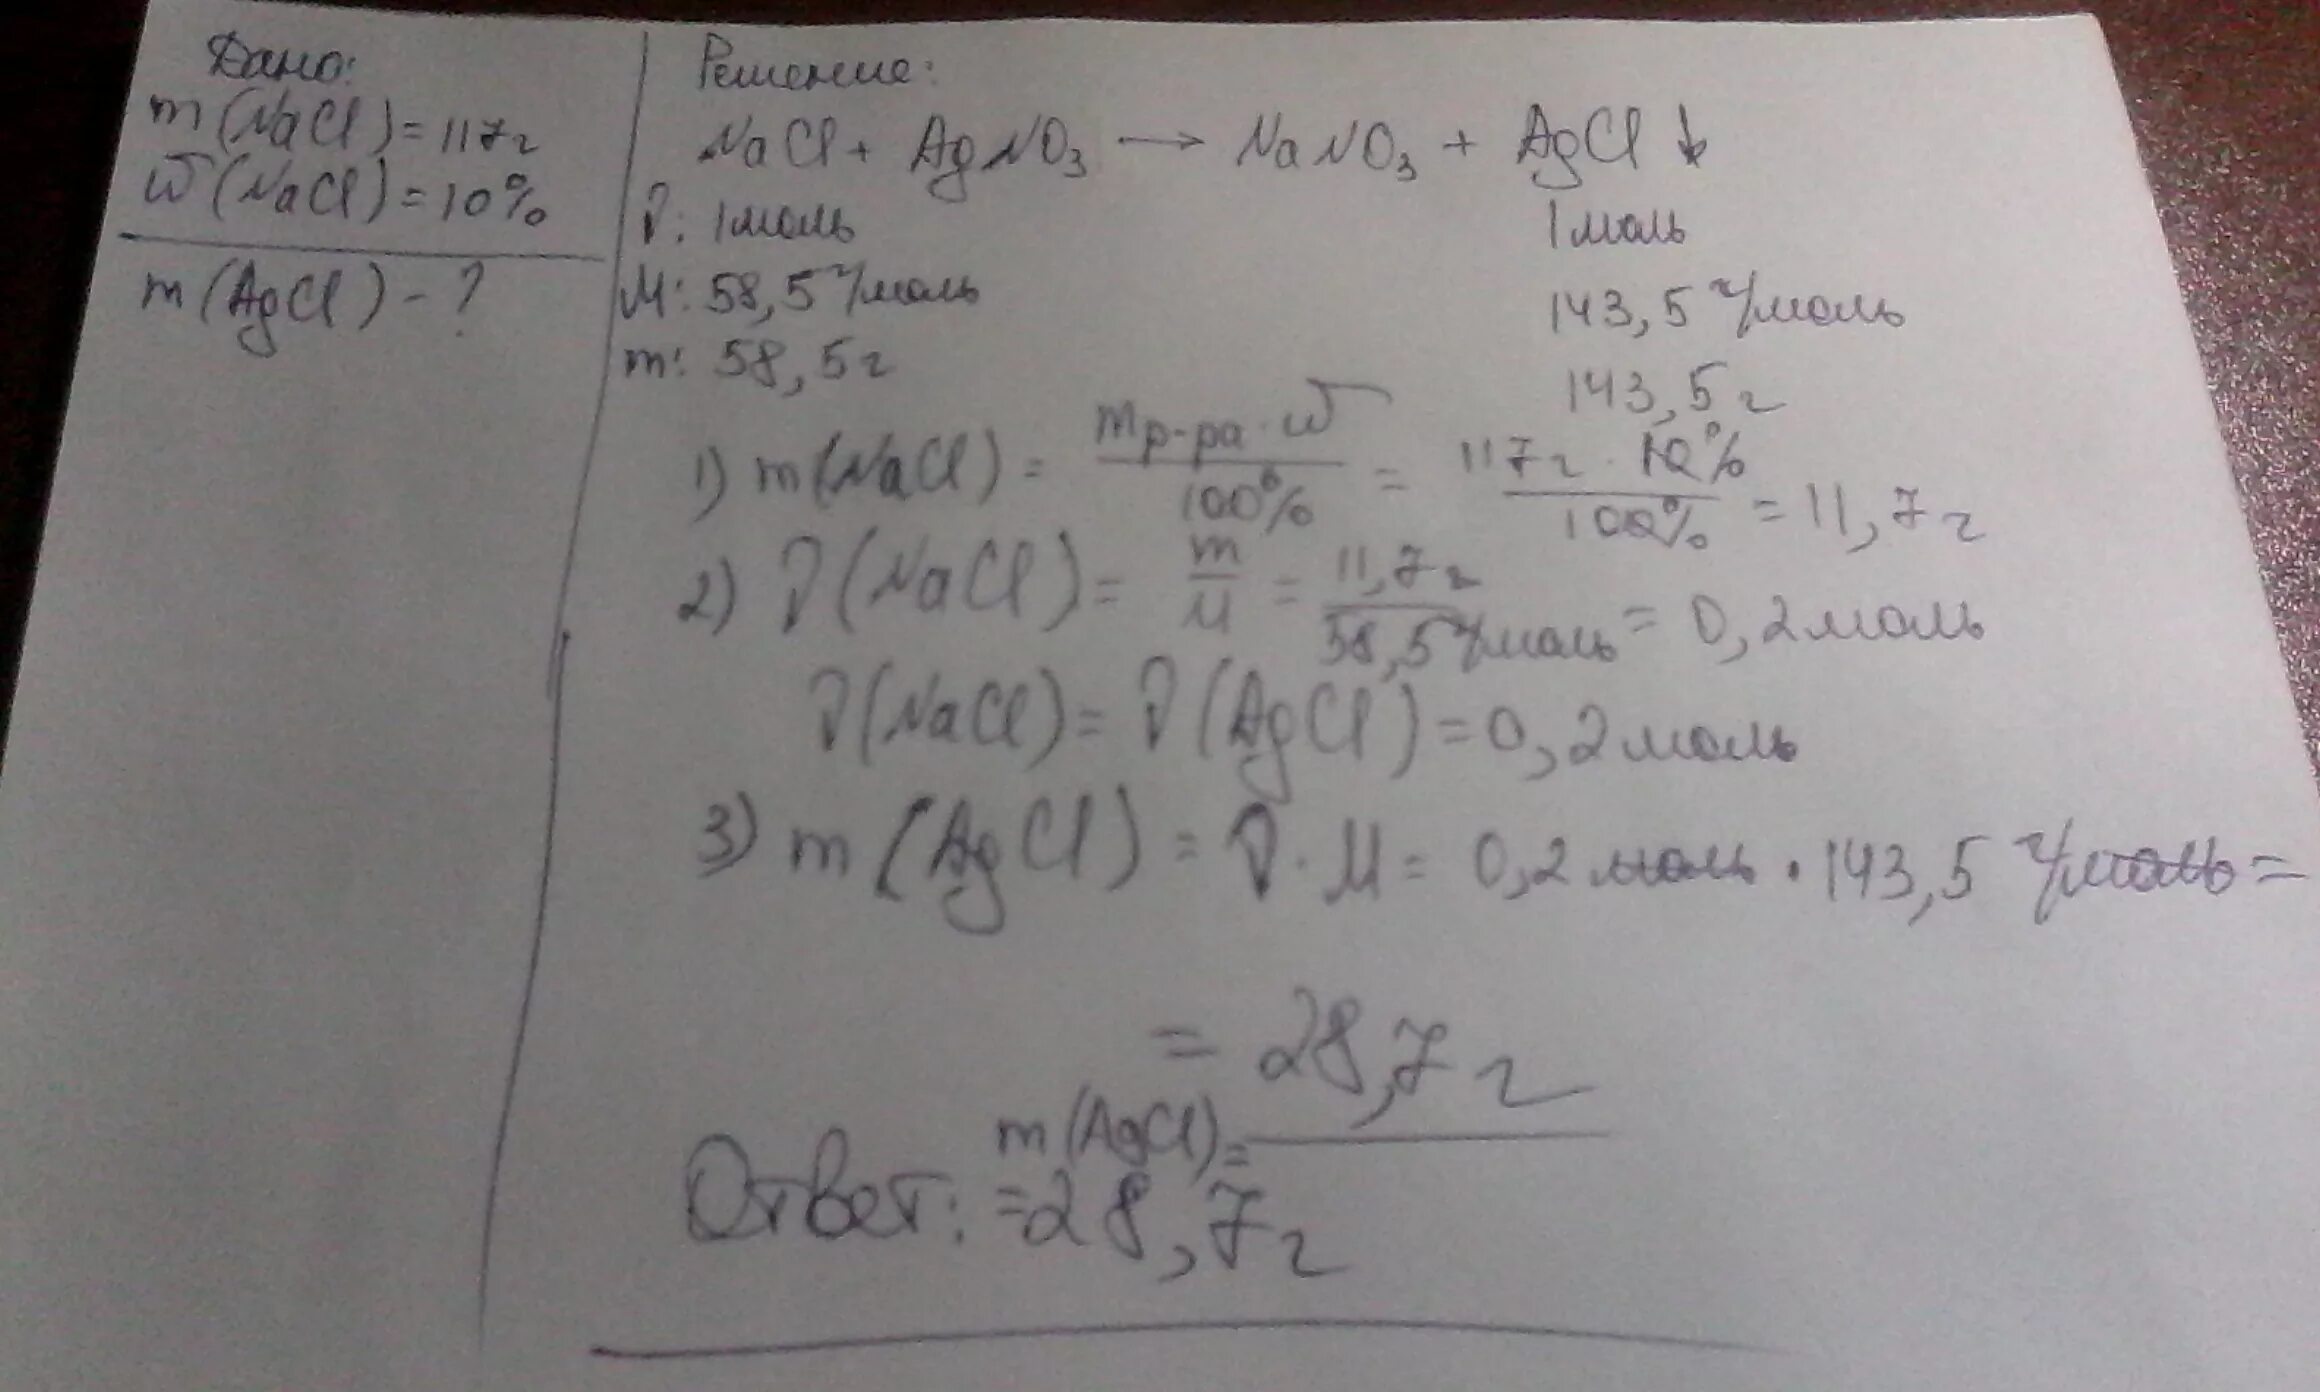 Дано:
m(NaCl)=117г
ω(NaCl)=10%
m(AgCl)-?
Решение:
NaCl + AgNO₃ → NaNO₃ + AgCl↓
ν: 1моль 1моль
M: 58,5 г/моль 143,5 г/моль
m: 58,5г 143,5г
1) m(NaCl) = mр-ра·ω/100% = 117г·10%/100% = 11,7г
2) ν(NaCl) = m/M = 11,7г/58,5г/моль = 0,2моль
ν(NaCl) = ν(AgCl) = 0,2моль
3) m(AgCl) = ν·M = 0,2моль·143,5 г/моль =
= 28,7г
Ответ: m(AgCl)=
=28,7г